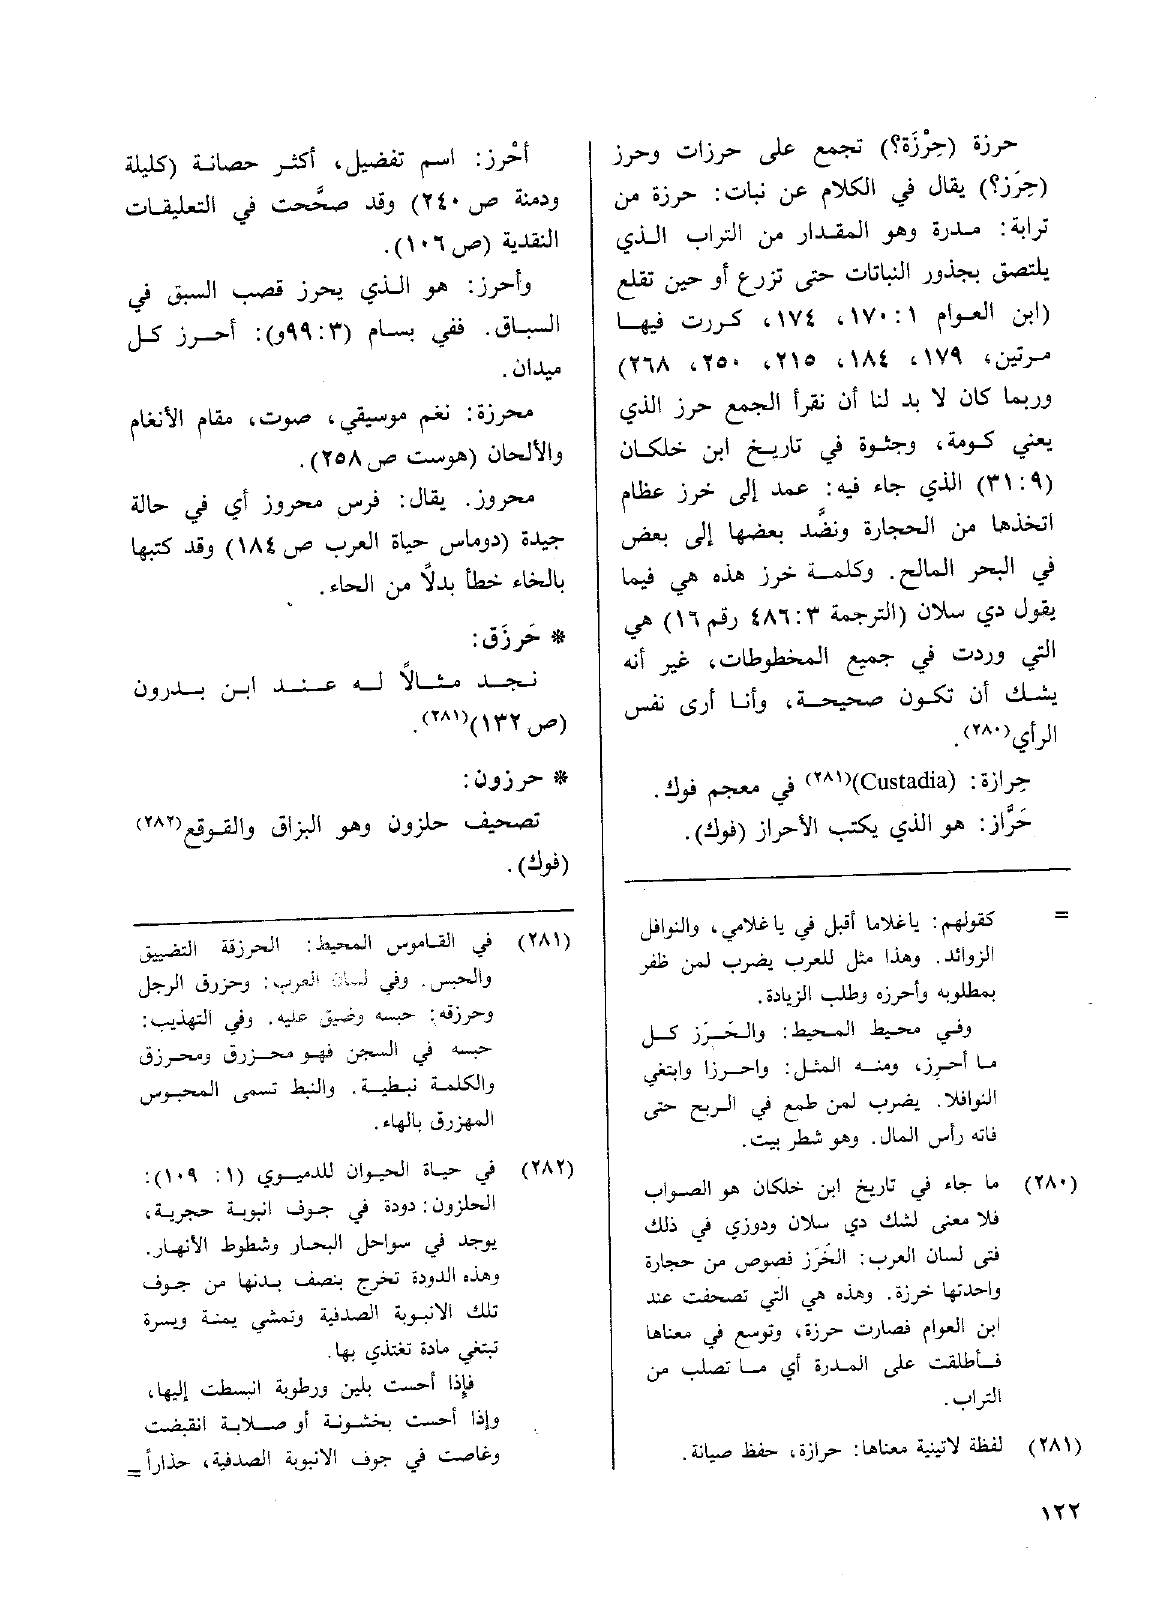 حرزة (حِرْزَة؟) تجمع على حرزات وحرز
(حِرَز؟) يقال في الكلام عن نبات: حرزة من
ترابة: مدرة وهو المقدار من التراب الذي
يلتصق بجذور النباتات حتى تزرع أو حين تقلع
(ابن العوام ١: ١٧٠، ١٧٤، كررت فيها
مرتين، ١٧٩، ١٨٤، ٢١٥، ٢٥٠، ٢٦٨)
وربما كان لا بد لنا أن نقرأ الجمع حرز الذي
يعني كومة، وجثوة في تاريخ ابن خلكان
(٩: ٣١) الذي جاء فيه: عمد إلى خرز عظام
اتخذها من الحجارة ونضَّد بعضها إلى بعض
في البحر المالح. وكلمة خرز هذه هي فيما
يقول دي سلان (الترجمة ٣: ٤٨٦ رقم ١٦) هي
التي وردت في جميع المخطوطات، غير أنه
يشك أن تكون صحيحة، وأنا أرى نفس
الرأي(٢٨٠).
حِرازة: (Custadia)(٢٨١) في معجم فوك.
حَرَّاز: هو الذي يكتب الأحراز (فوك).
= كقولهم: ياغلاما أقبل في ياغلامي، والنوافل
الزوائد. وهذا مثل للعرب يضرب لمن ظفر
بمطلوبه وأحرزه وطلب الزيادة.
وفي محيط المحيط: والحَرَز كل
ما أحرز، ومنه المثل: واحرزا وابتغي
النوافلا. يضرب لمن طمع في الربح حتى
فاته رأس المال. وهو شطر بيت.
(٢٨٠) ما جاء في تاريخ ابن خلكان هو الصواب
فلا معنى لشك دي سلان ودوزي في ذلك
فتى لسان العرب: الخَرَز فصوص من حجارة
واحدتها خرزة. وهذه هي التي تصحفت عند
ابن العوام فصارت حرزة، وتوسع في معناها
فأطلقت على المدرة أي ما تصلب من
التراب.
(٢٨١) لفظة لاتينية معناها: حرازة، حفظ صيانة.
أحْرز: اسم تفضيل، أكثر حصانة (كليلة
ودمنة ص ٢٤٠) وقد صحَّحت في التعليقات
النقدية (ص ١٠٦).
وأحرز: هو الذي يحرز قصب السبق في
السباق. ففي بسام (٣: ٩٩و): أحرز كل
ميدان.
محرزة: نغم موسيقي، صوت، مقام الأنغام
والألحان (هوست ص ٢٥٨).
محروز. يقال: فرس محروز أي في حالة
جيدة (دوماس حياة العرب ص ١٨٤) وقد كتبها
بالخاء خطأ بدلاً من الحاء.
* حَرزَق:
نجد مثالاً له عند ابن بدرون
(ص ١٣٢)(٢٨١).
* حرزون:
تصحيف حلزون وهو البزاق والقوقع(٢٨٢)
(فوك).
(٢٨١) في القاموس المحيط: الحرزقة التضييق
والحبس. وفي لسان العرب: وحزرق الرجل
وحرزقه: حبسه وضيق عليه. وفي التهذيب:
حبسه في السجن فهو محزرق ومحرزق
والكلمة نبطية. والنبط تسمى المحبوس
المهزرق بالهاء.
(٢٨٢) في حياة الحيوان للدميوي (١: ١٠٩):
الحلزون: دودة في جوف انبوبة حجرية،
يوجد في سواحل البحار وشطوط الأنهار.
وهذه الدودة تخرج بنصف بدنها من جوف
تلك الانبوبة الصدفية وتمشي يمنة ويسرة
تبتغي مادة تغتذي بها.
فإذا أحست بلين ورطوبة انبسطت إليها،
وإذا أحست بخشونة أو صلابة انقبضت
وغاصت في جوف الانبوبة الصدفية، حذاراً =
١٢٢